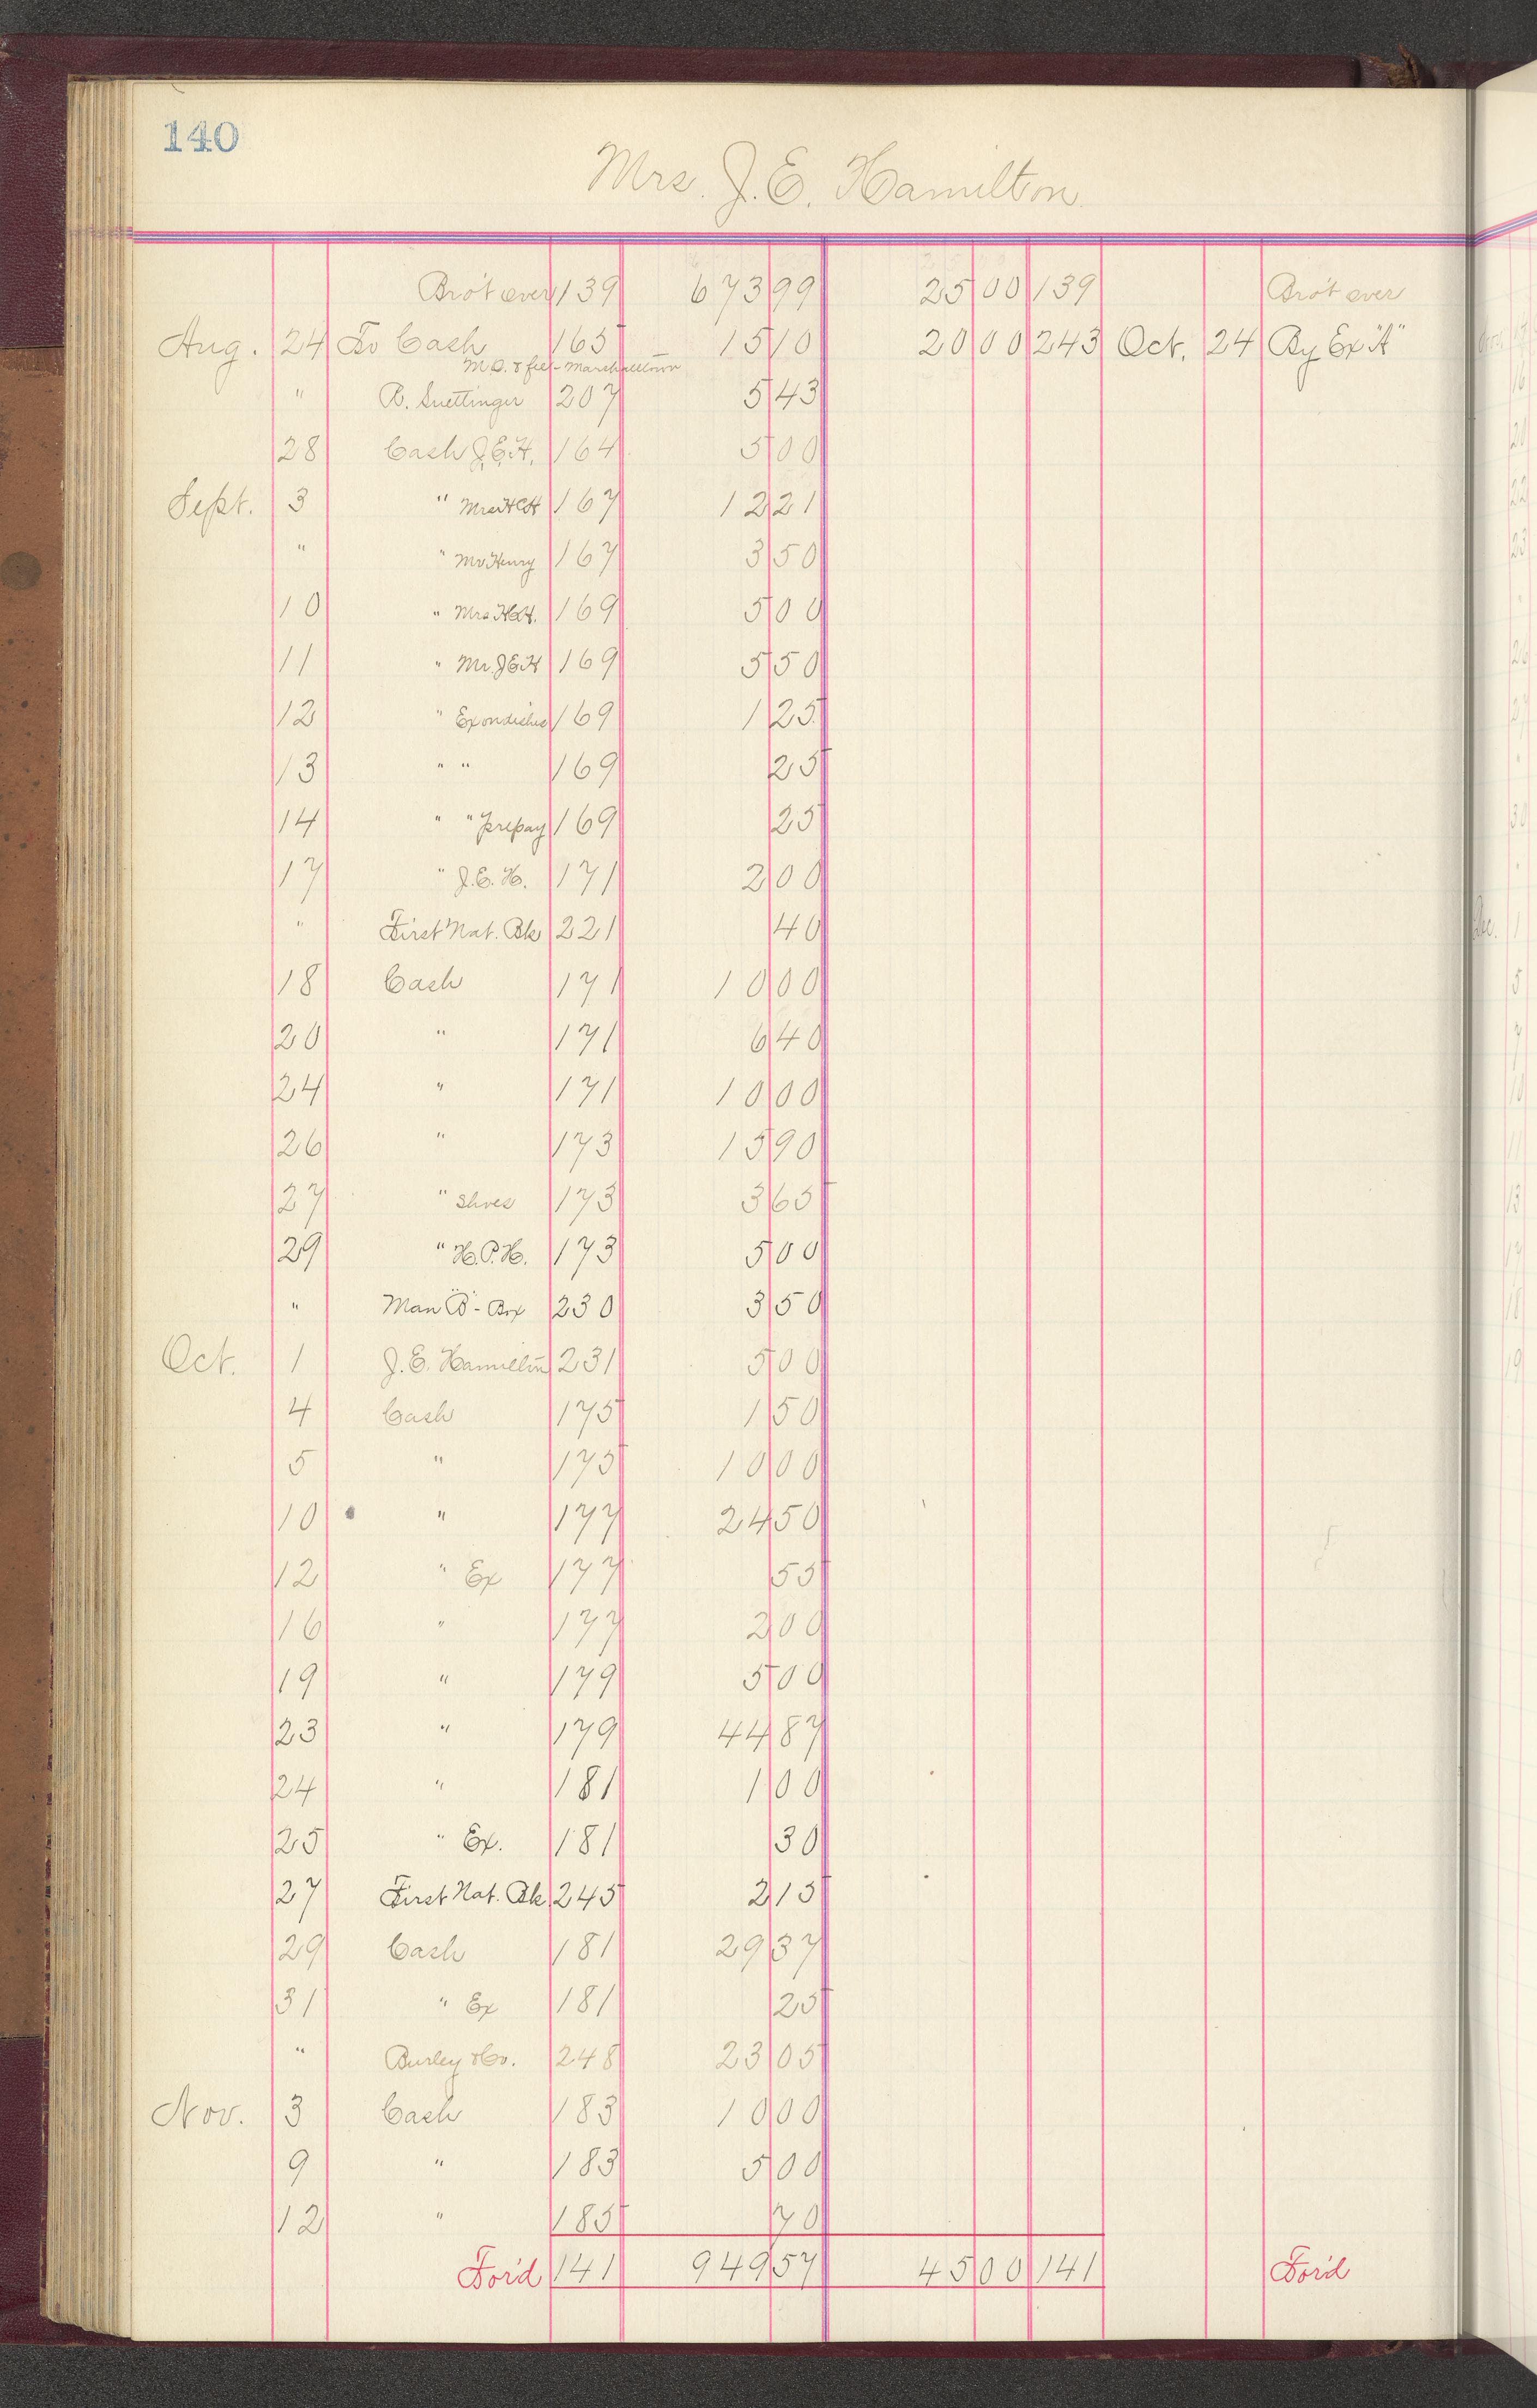 140
Mrs. J. E. Hamilton
Bro't over 139 673 99 25 00 139 Bro't over
Aug. 24 To Cash 165 15 10 20 00 243 Oct. 24 By Ex "A"
M.O. & fee - Marshalltown
" B. 207 5 43
28 Cash J.E.H. 164 5 00
Sept. 3 " Mrs HCH 167 12 21
" " Mr Henry 167 3 50
10 " Mrs. HCH. 169 5 00
11 " Mr. JEH 169 5 50
12 " Ex on dishes 169 1 25
13 " " 169 25
14 " " prepay 169 25
17 " J.E.H. 171 2 00
" First Nat. Bk 221 40
18 Cash 171 10 00
20 " 171 6 40
24 " 171 10 00
26 " 173 15 90
27 " Shoes 173 3 65
29 " H.P.H. 173 5 00
" Man "B" - Box 230 3 50
Oct. 1 J.E. Hamilton 231 5 00
4 Cash 175 1 50
5 " 175 10 00
10 " 177 24 50
12 " Ex 177 55
16 " 177 2 00
19 " 179 5 00
23 " 179 44 87
24 " 181 1 00
25 " Ex. 181 30
27 First Nat. Bk. 245 2 15
29 Cash 181 29 37
31 " Ex 181 25
" Burley & Co. 248 23 05
Nov. 3 Cash 183 10 00
9 " 183 5 00
12 " 185 70
For'd 141 949 57 45 00 141 For'd